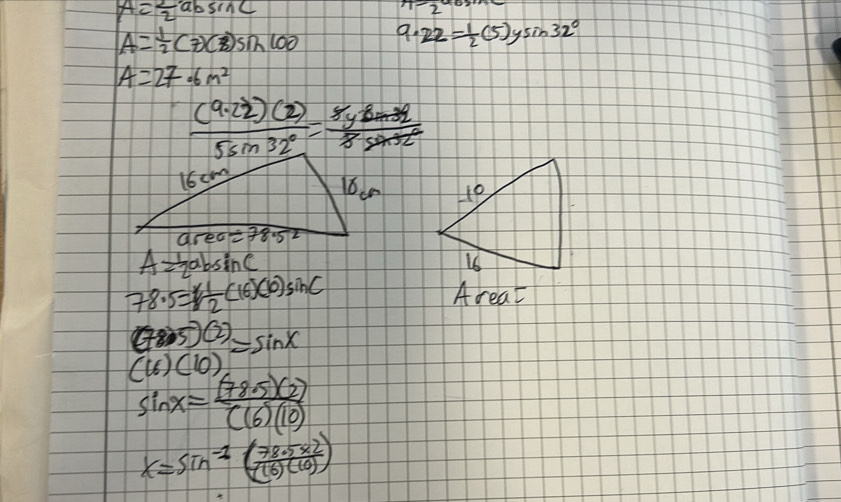 A=½absinC
A=½(7)(8)sin100
A=27.6m²
9.22=½(5)ysin32°
(9.22)(2) = 5ysin32
5sin32° 5 sin32°
16cm
10cm
area=78.52
A=½absinC
78.5=½(16)(10)sinC
(78.5)(2) =sinx
(16)(10)
sinx= (78.5)(2)
(16)(10)
x=sin⁻¹ (78.5×2
(16)(10))
10
16
Area=